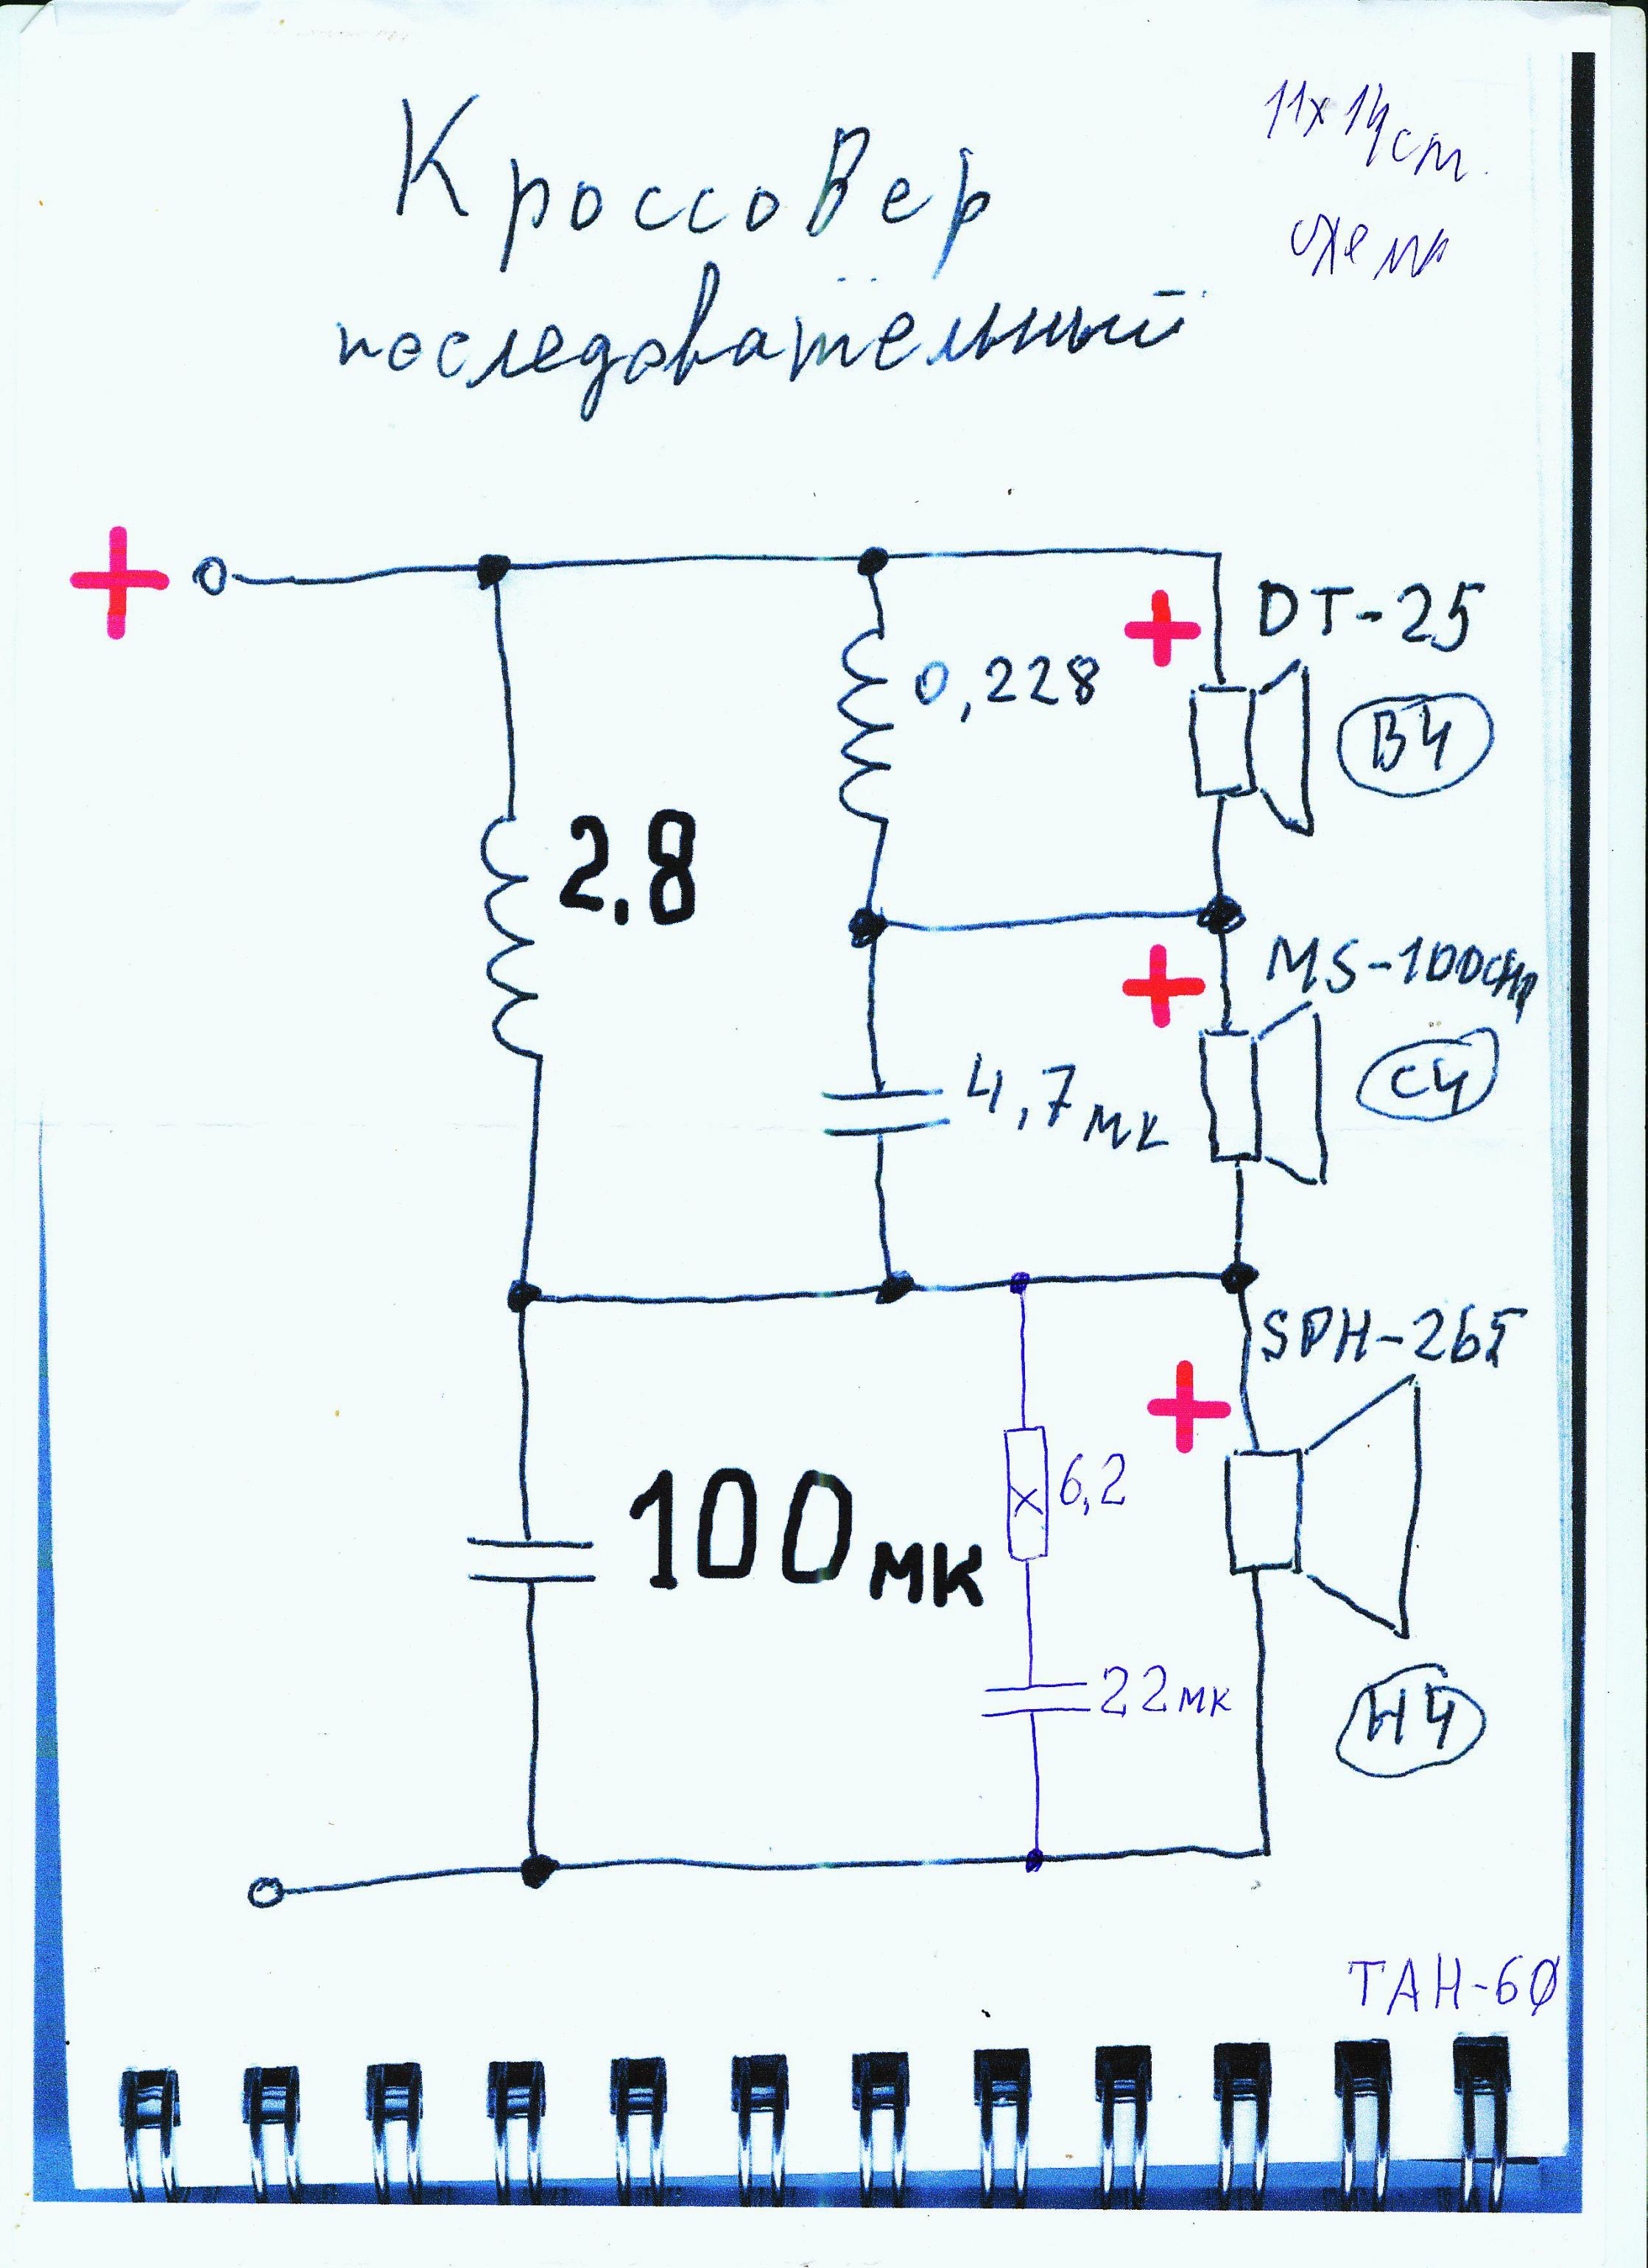 Кроссовер
последовательный
11х14см.
схема
+
+
DT-25
0,228
ВЧ
2,8
+
4,7мк
СЧ
SPH-265
+
6,2
100мк
22мк
НЧ
ТАН-60